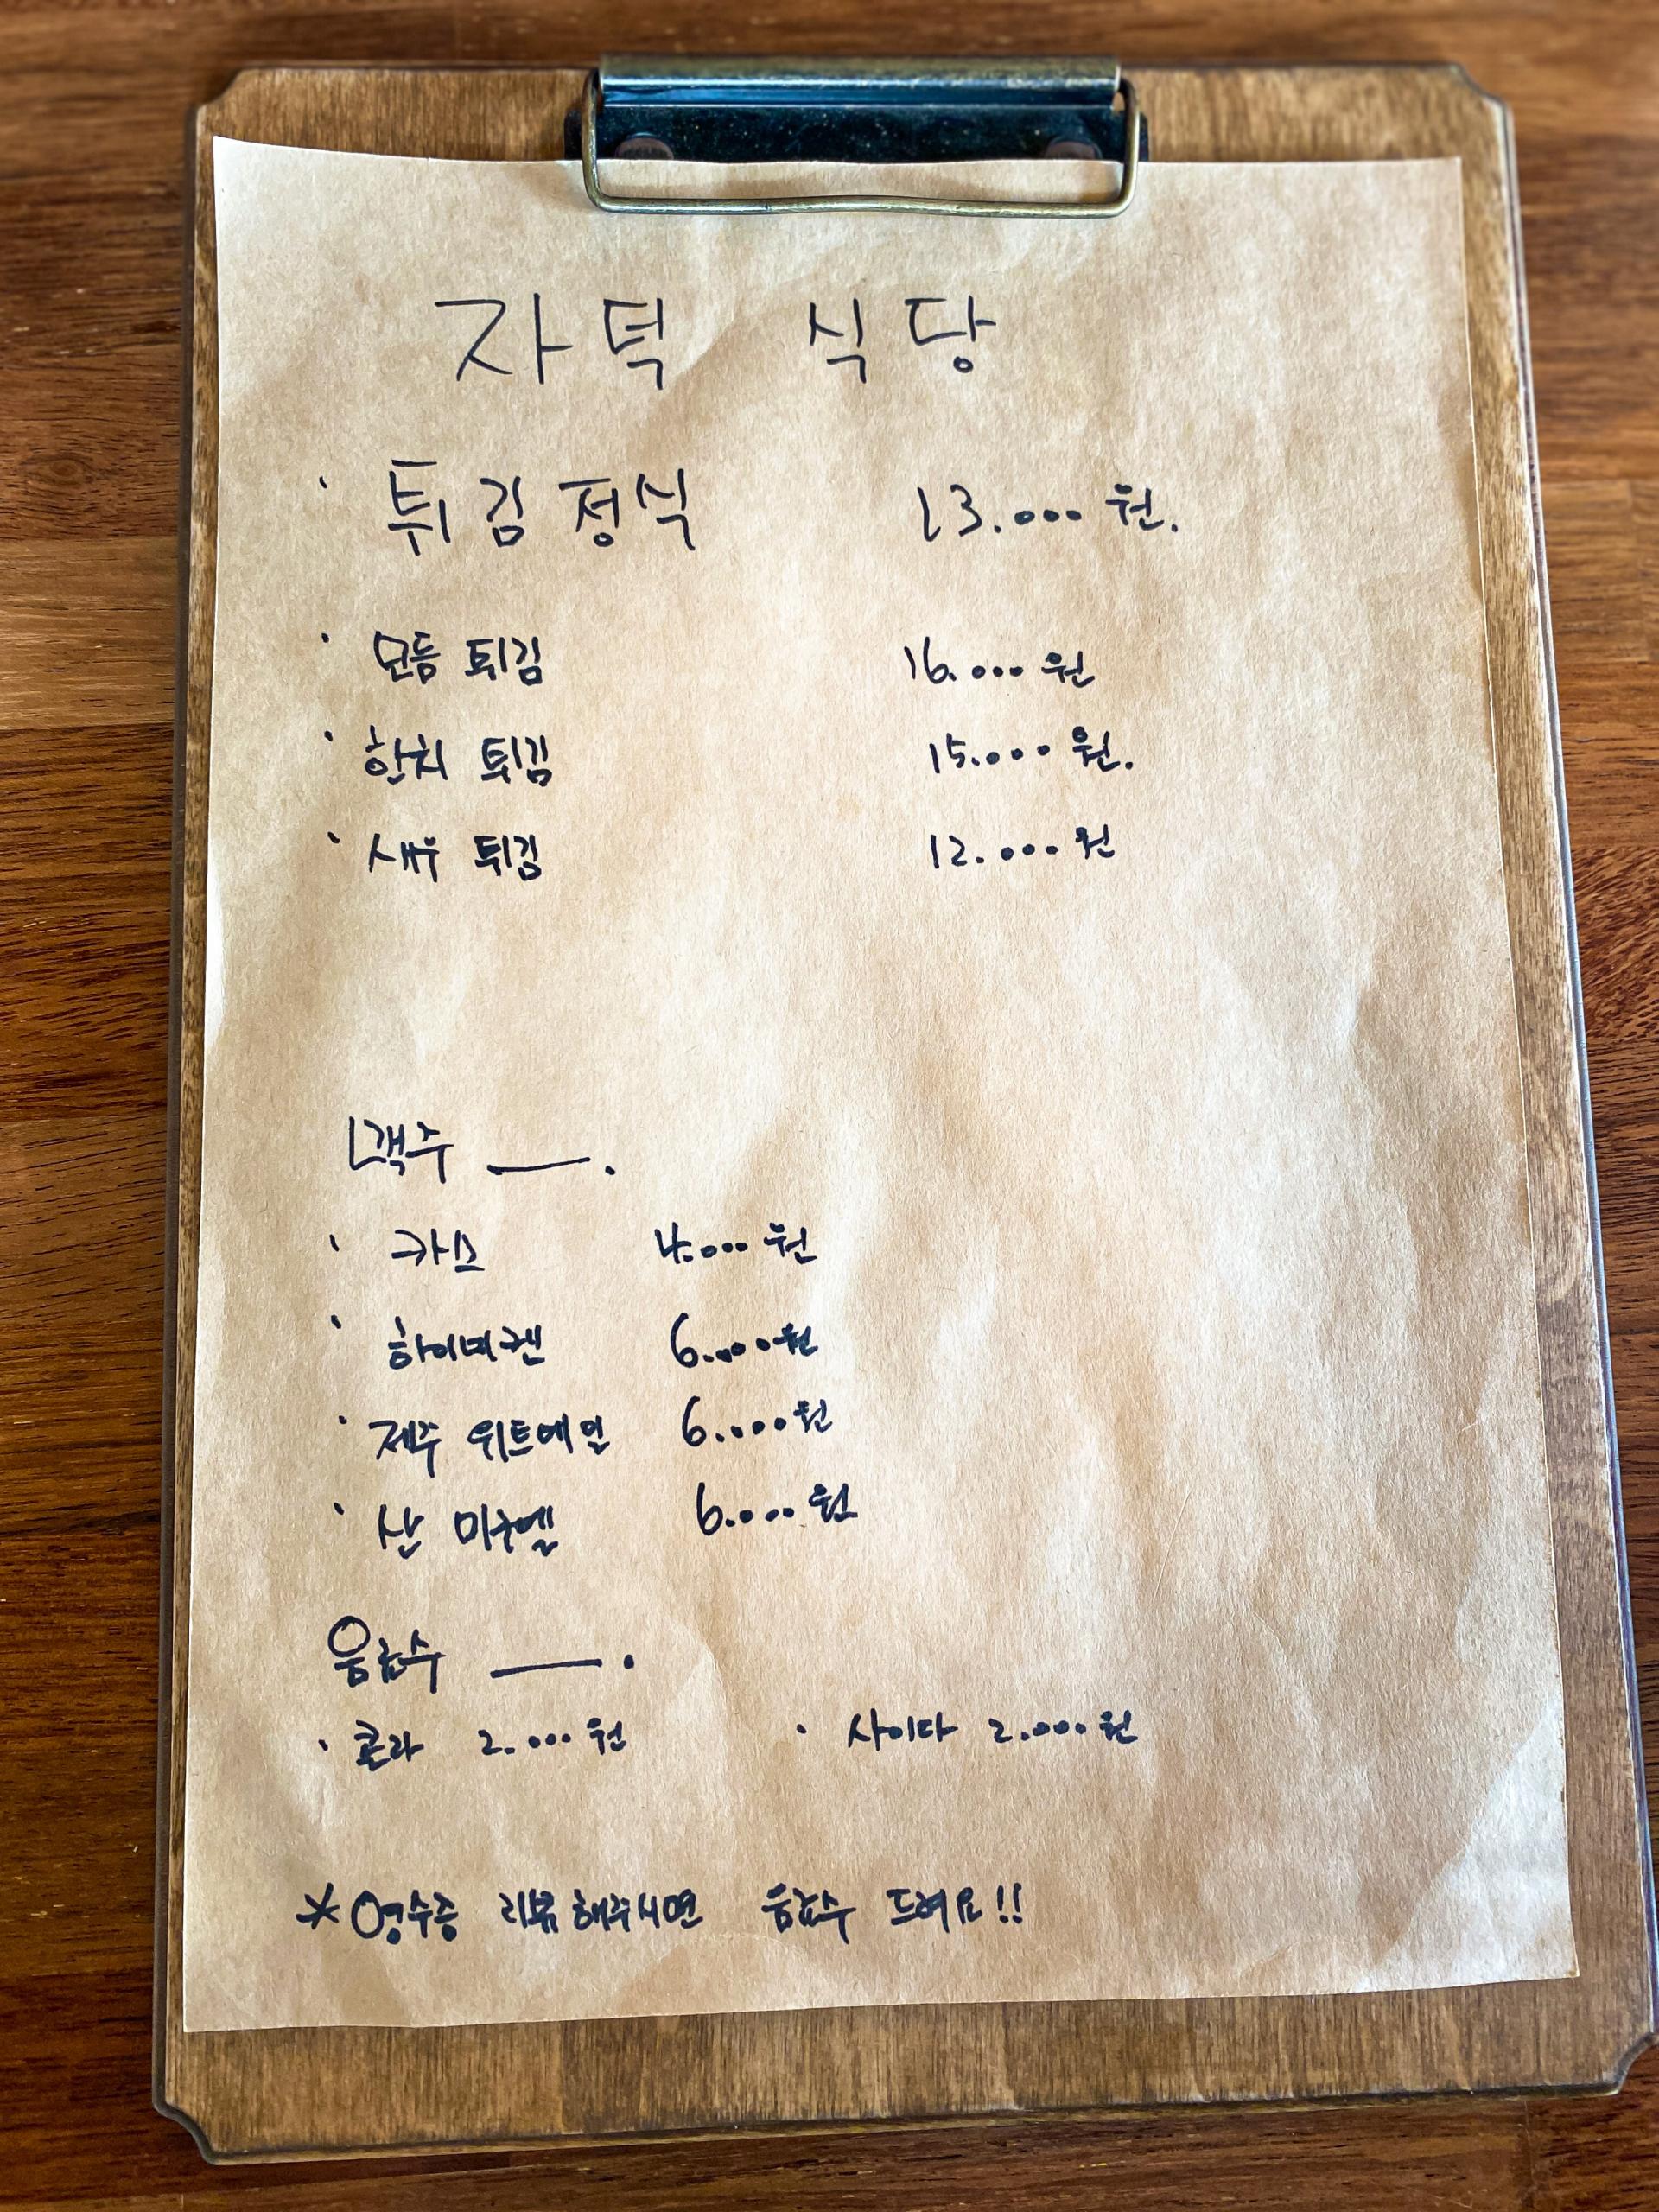 자턱 식당
· 튀김정식 13.000원.
· 모듬 튀김 16.000원
· 한치 튀김 15.000원.
· 새우 튀김 12.000원
맥주 —.
· 카스 4.000원
· 하이네켄 6.000원
· 제주 위트에일 6.000원
· 산 미구엘 6.000원
음료수 —.
· 콜라 2.000원 · 사이다 2.000원
* 영수증 리뷰 해주시면 음료수 드려요!!